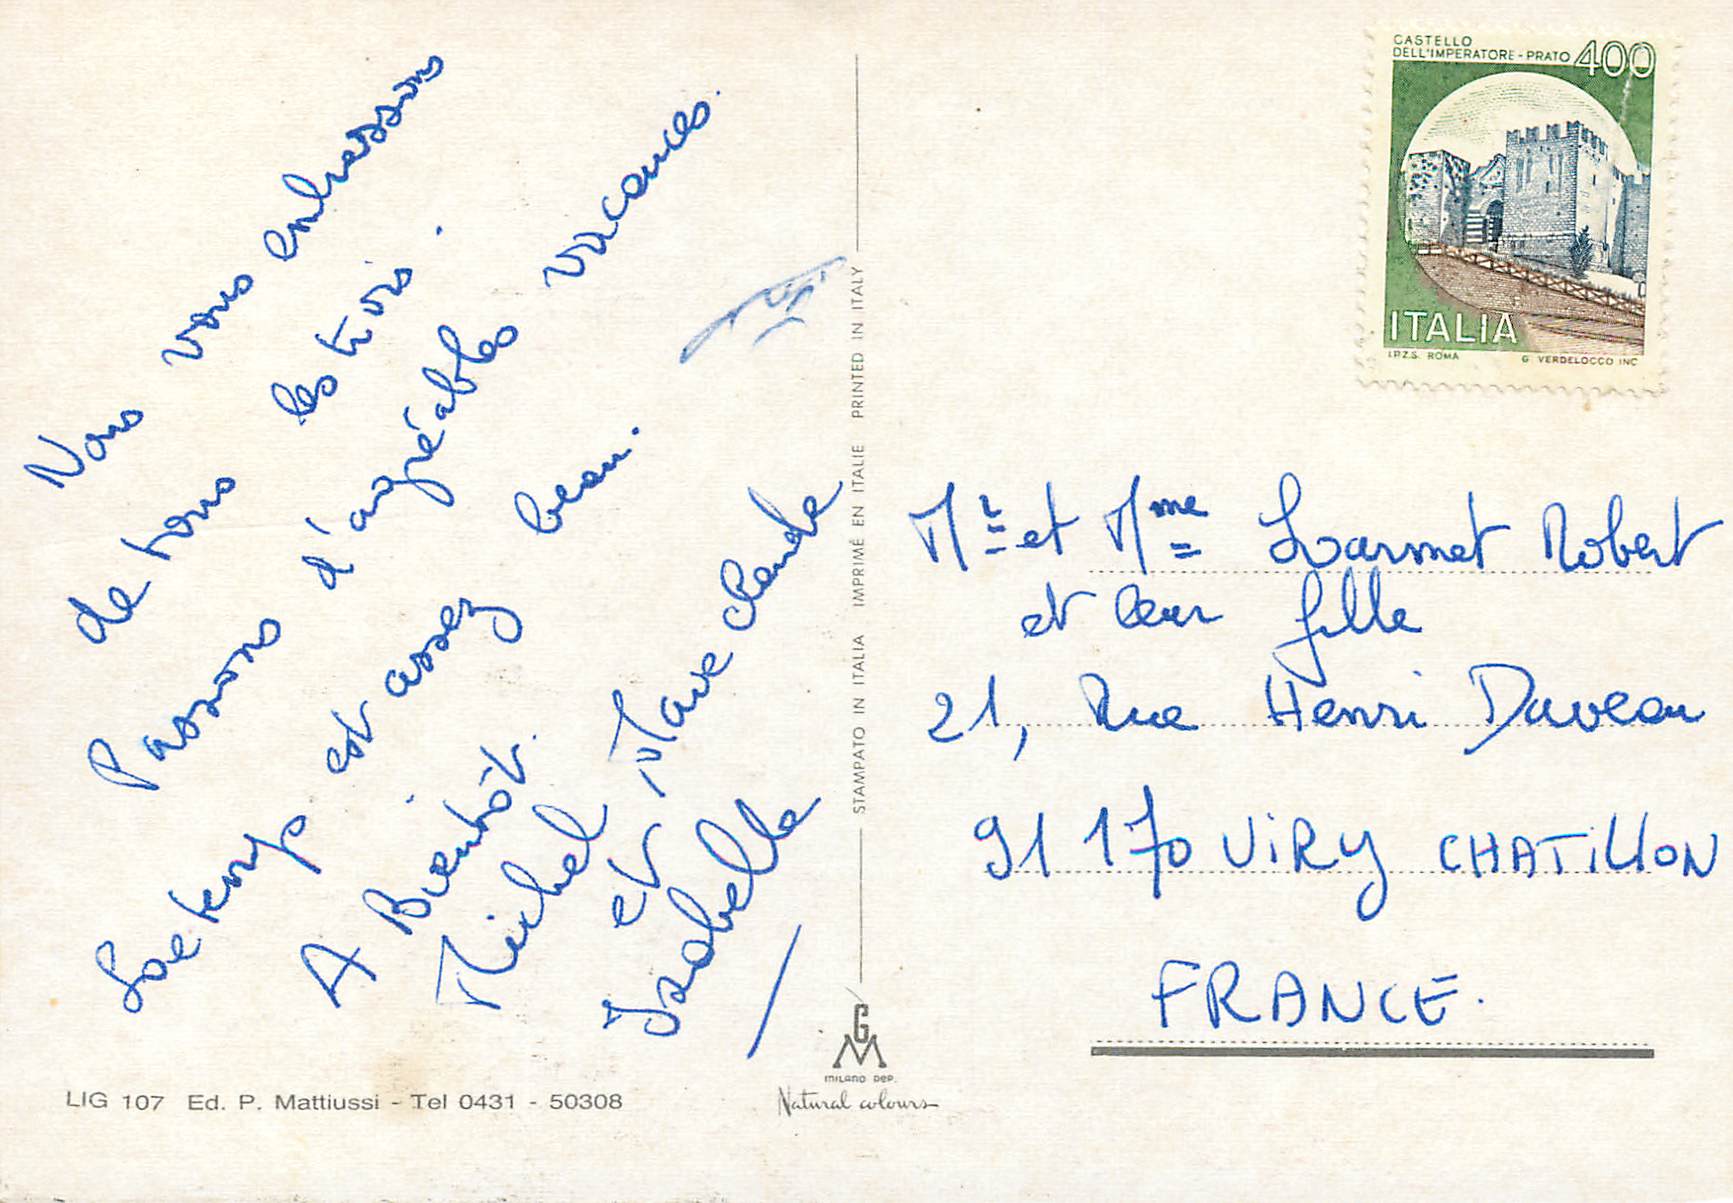 Nous vous embrassons
de tous les trois.
Passons d'agréables vacances.
Le temps est assez beau.
A Bientôt.
Michel et Marie Claude
et
Isabelle
STAMPATO IN ITALIA IMPRIMÉ EN ITALIE PRINTED IN ITALY
CASTELLO
DELL'IMPERATORE - PRATO 400
ITALIA
I.P.Z.S. ROMA G. VERDELOCCO INC.
Mr et Mme Larmet Robert
et leur fille
21, Rue Henri Daveau
91170 ViRy CHATillON
FRANCE.
GM
MILANO DEP.
Natural colours
LIG 107 Ed. P. Mattiussi - Tel 0431 - 50308